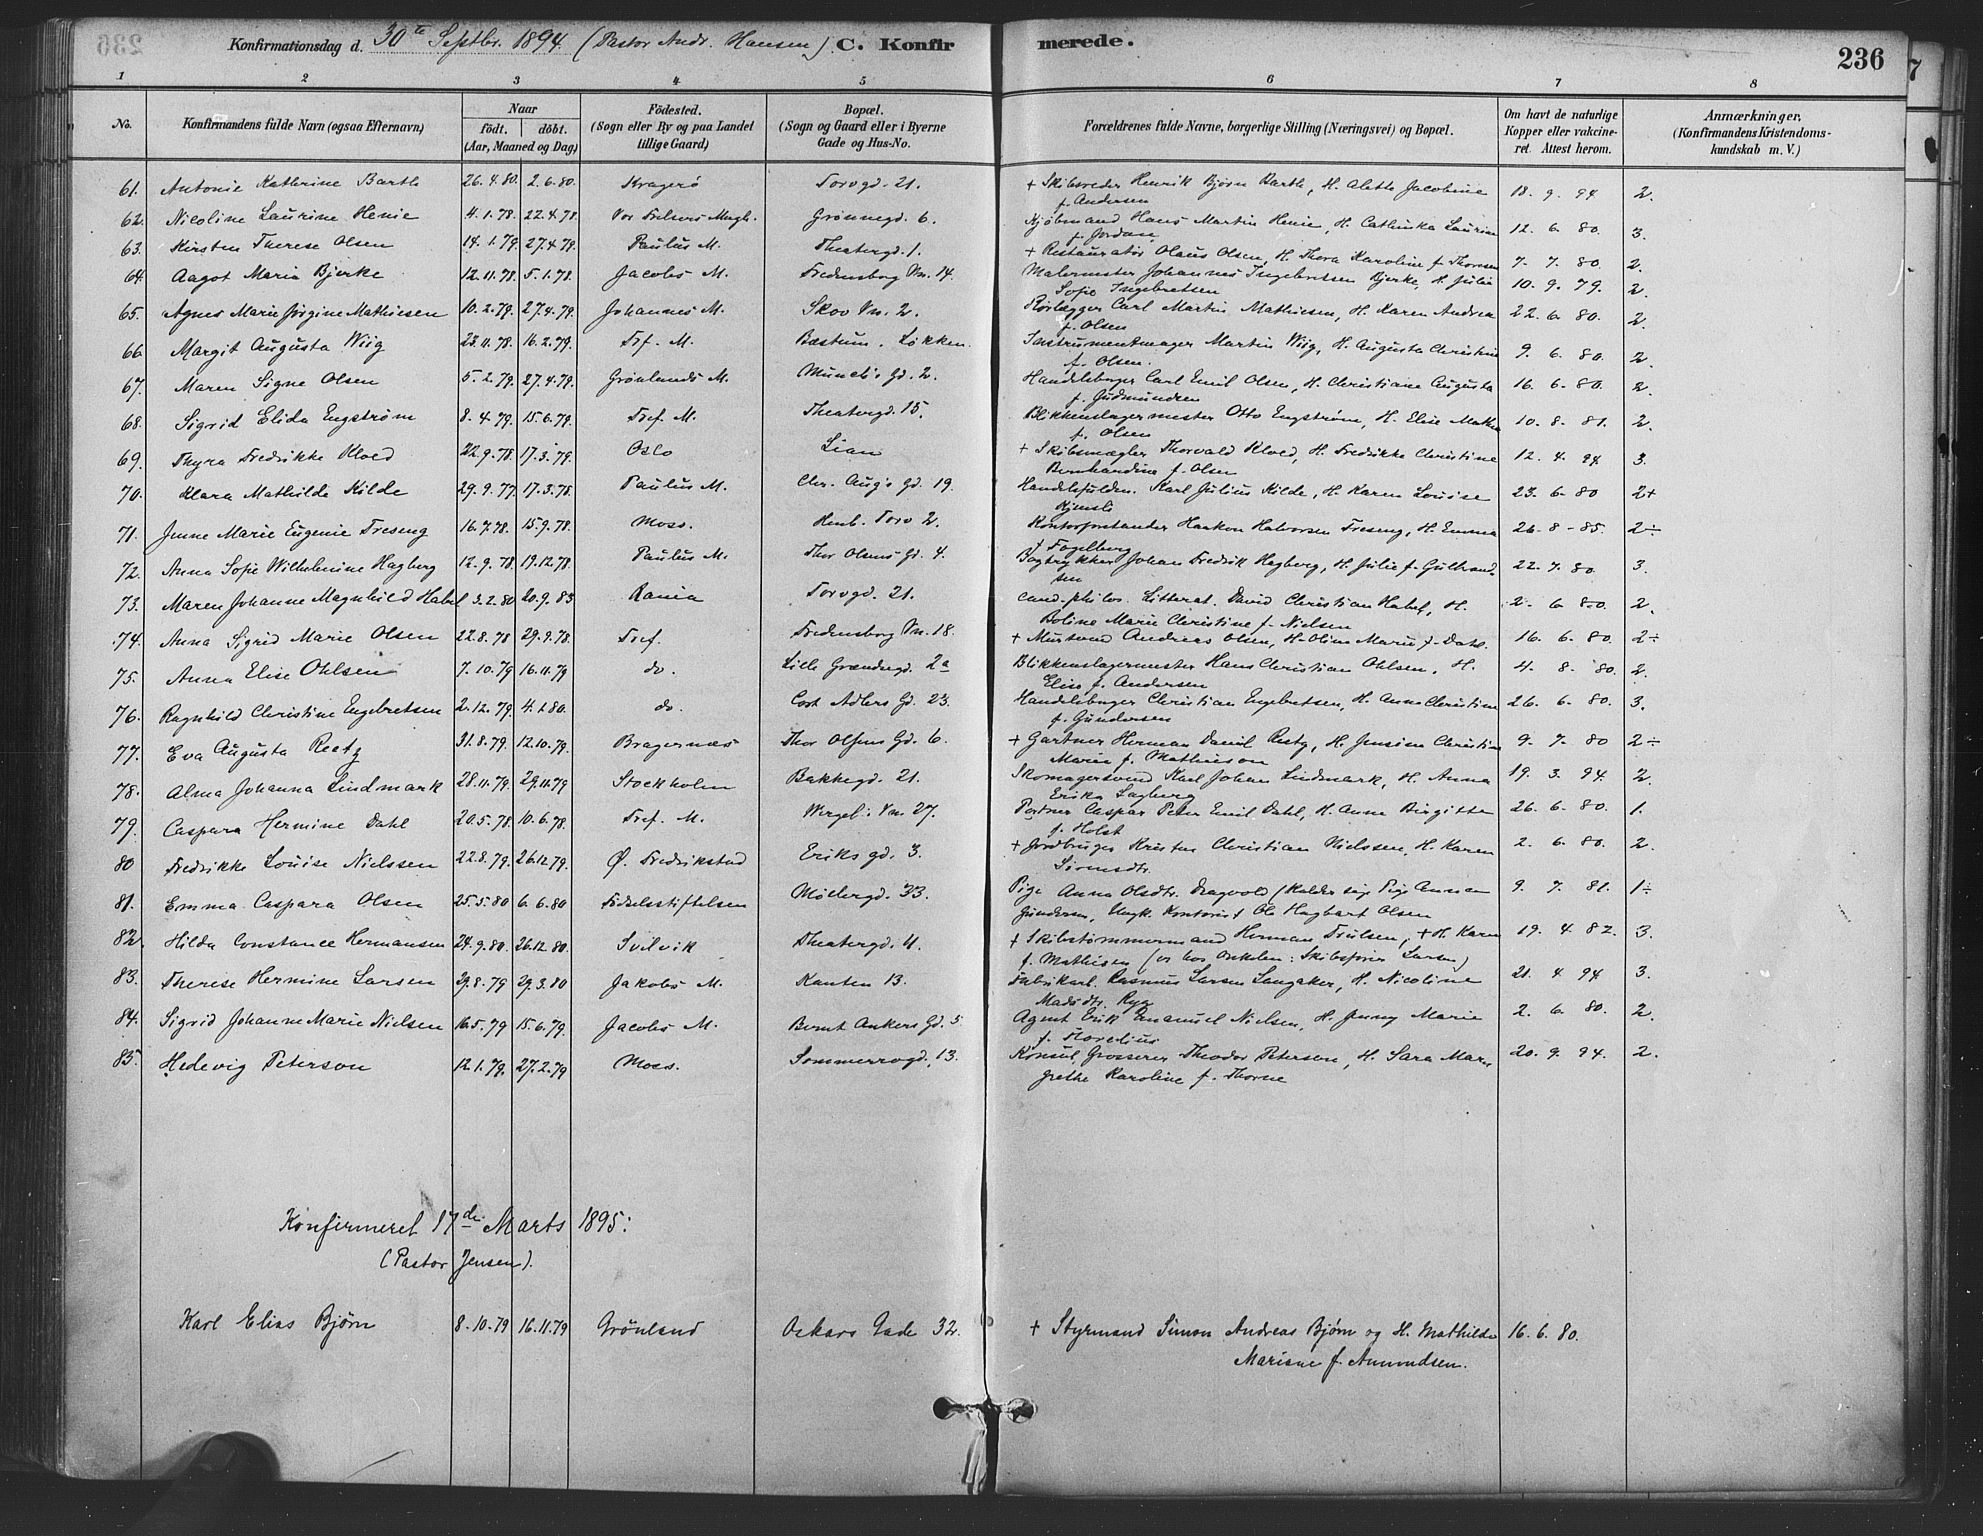 Konfirmationsdag d. 30te Septbr. 1894 (Pastor Andr. Hansen) C. Konfirmerede. 236
1 2 3 4 5 6 7 8
No. Konfirmandens fulde Navn (ogsaa Efternavn) Naar födt. döbt. (Aar, Maaned og Dag) Födested. (Sogn eller By og paa Landet tillige Gaard) Bopæl. (Sogn og Gaard eller i Byerne Gade og Hus-No. Forældrenes fulde Navne, borgerlige Stilling (Næringsvei) og Bopæl. Om havt de naturlige Kopper eller vakcineret. Attest herom. Anmærkninger. (Konfirmandens Kristendomskundskab m. V.)
61. Antonie Kathrine Barth 26.4.80. 2.6.80. Kragerö Torvgd. 21. + Skibsreder Henrik Bjørn Barth, H. Alette Jacobine f. Andersen 18. 9. 94 2.
62. Nicoline Laurine Henie 4.1.78. 22.4.78. Vor Frelsers Mngh. Grönnegd. 6. Kjöbmand Hans Martin Henie, H. Cathinka Laurine f. Jordan 12. 6. 80. 3.
63. Kirsten Therese Olsen 14.1.79. 27.4.79. Paulus M. Theatergd. 1. + Restauratör Olaus Olsen, H. Thora Karoline f. Thoresen 7. 7. 80. 2.
64. Aagot Maria Bjerke 12.11.78. 5.1.78. Jacobs M. Fredensborg Vn. 14. Malermester Johannes Ingebretsen Bjerke, H. Julie Sofie Ingebretsen 10. 9. 79. 2.
65. Agnes Marie Jørgine Mathiesen 10.2.79. 27.4.79. Johannes M. Skov Vn. 2. Rörlægger Carl Martin Mathiesen, H. Karen Andrea f. Olsen 22. 6. 80. 2.
66. Margit Augusta Wiig 23.11.78. 16.2.79. Trf. M. Bæstum. Lökken. Instrumentmager Martin Wiig, H. Augusta Christine f. Olsen. 9. 6. 80. 2.
67. Maren Signe Olsen 5.2.79. 27.4.79. Grönlands M. Munch's Gd. 2. Handelsborger Carl Emil Olsen, H. Christiane Augusta f. Gudmundsen 16. 6. 80. 2
68. Sigrid Elida Engström 8.4.79. 15.6.79. Tref. M. Theatergd. 15. Blikkenslagermester Otto Engström, H. Elise f. Olsen 10. 8. 81. 2.
69. Thyra Fredrikke Kloed 22.9.78. 17.3.79. Oslo Lian + Skibsmægler Thorvald Kloed, H. Fredrikke Christine Bernhardine f. Olsen 12. 4. 94. 3.
70. Klara Mathilde Kilde 29.9.77. 17.3.78. Paulus M. Chr. Aug's Gd. 19. Handelsfuldm. Karl Julius Kilde, H. Karen Louise 23. 6. 80 2+
71. Jenne Marie Eugenie Treseng 16.7.78. 15.9.78. Moss. Torv 2. Haakon Halvorsen Treseng, H. Emma f. Fogelberg 26. 8. 85. 2÷
72. Anna Sofie Wilhelmine Hagberg 12.9.78. 19.12.78. Paulus M. Thor Olsens Gd. 4. Bogtrykker Johan Fredrik Hagberg, H. Julie f. Gulbrandsen 22. 7. 80. 3.
73. Maren Johanne Magnhild Habel 3.2.80 20.9.83 Rania Torvgd. 21. cand. philos. Litterat. David Christian Habel, H. Boline Marie Christine f. Nielsen 2. 6. 80. 2.
74. Anna Sigrid Marie Olsen 22.8.78 29.9.78. Tref. Fredensborg Vn. 18. + Andreas Olsen, H. Oline Marie f. Dahl. 16. 6. 80. 2÷
75. Anna Elise Ohlsen 7.10.79 16.11.79 do. Lille Grændsegd. 2a Blikkenslagermester Hans Christian Ohlsen, H. Elise f. Andersen 4. 8. 80. 2.
76. Ragnhild Christine Engebretsen 2.12.79. 4.1.80. do. Cort Adlers Gd. 23. Handelsborger Christian Engebretsen, H. Anne Christine f. Gundersen 26. 6. 80. 3.
77. Eva Augusta Reetz 31.8.79. 12.10.79. Bragernæs Thor Olsens Gd. 6. + Gartner Herman Daniel Reetz, H. Jensine Christine Marie f. Mathieson 9. 7. 80 2÷
78. Alma Johanna Lindmark 28.11.79. 29.11.79 Stockholm Bakkegd. 21. Skomagersvend Karl Johan Lindmark, H. Anna Erika Lagberg 19. 3. 94. 2.
79. Caspara Hermine Dahl 20.5.78. 10.6.78. Tref. M. Vn. 27. Portner Caspar Peter Emil Dahl, H. Anne Birgitte f. Holst 26. 6. 80. 1.
80 Fredrikke Louise Nielssen 22.8.79. 26.12.79. Ø. Fredrikstad Eriks gd. 3. + Jordbruger Kristen Christian Nielssen, H. Karen 2. 6. 80. 2.
81. Emma Caspara Olsen 25.5.80 6.6.80 Födselsstiftelsen Møllergd. 33. Pige Anna Olsdtr. Dragvold (kalder sig Pige Anna Gundersen, Ungk. Kontorist Ole Hagbart Olsen 9. 7. 81. 1÷
82. Hilda Constance Hermansen 24.9.80. 26.12.80. Svelvik Theatergd. 11. + Skibstømmermand Herman Trulsen, + H. Karen f. Mathisen (er hos Onkelen: Skibsfører Larsen) 19. 4. 82. 3.
83. Therese Hermine Larsen 29.8.79 29.3.80 Jakobs M. Ranten 13. Fabrikarb. Rasmus Larsen Langaker, H. Nicoline Madsdtr. Ryg 21. 4. 94 3.
84. Sigrid Johanne Marie Nielsen 16.5.79 15.6.79. Jacobs M. Bernt Ankers Gd. 5 Agent Erik Emanuel Nielsen, H. Jenny Marie f. 2. 6. 80. 2.
85. Hedevig Peterson 12.1.79. 27.2.79 Moss. Sommerrogd. 13. Konsul, Grosserer Theodor Peterson, H. Sara Margrethe Karoline f. Thorne 20. 9. 94. 2.
Konfirmeret 17de Marts 1895:
(Pastor Jensen).
Karl Elias Bjørn 8.10.79 16.11.79 Grönland Oskars Gade 32. + Styrmand Simon Andreas Bjørn og H. Mathilde Marisne f. Amundsen. 16. 6. 80.